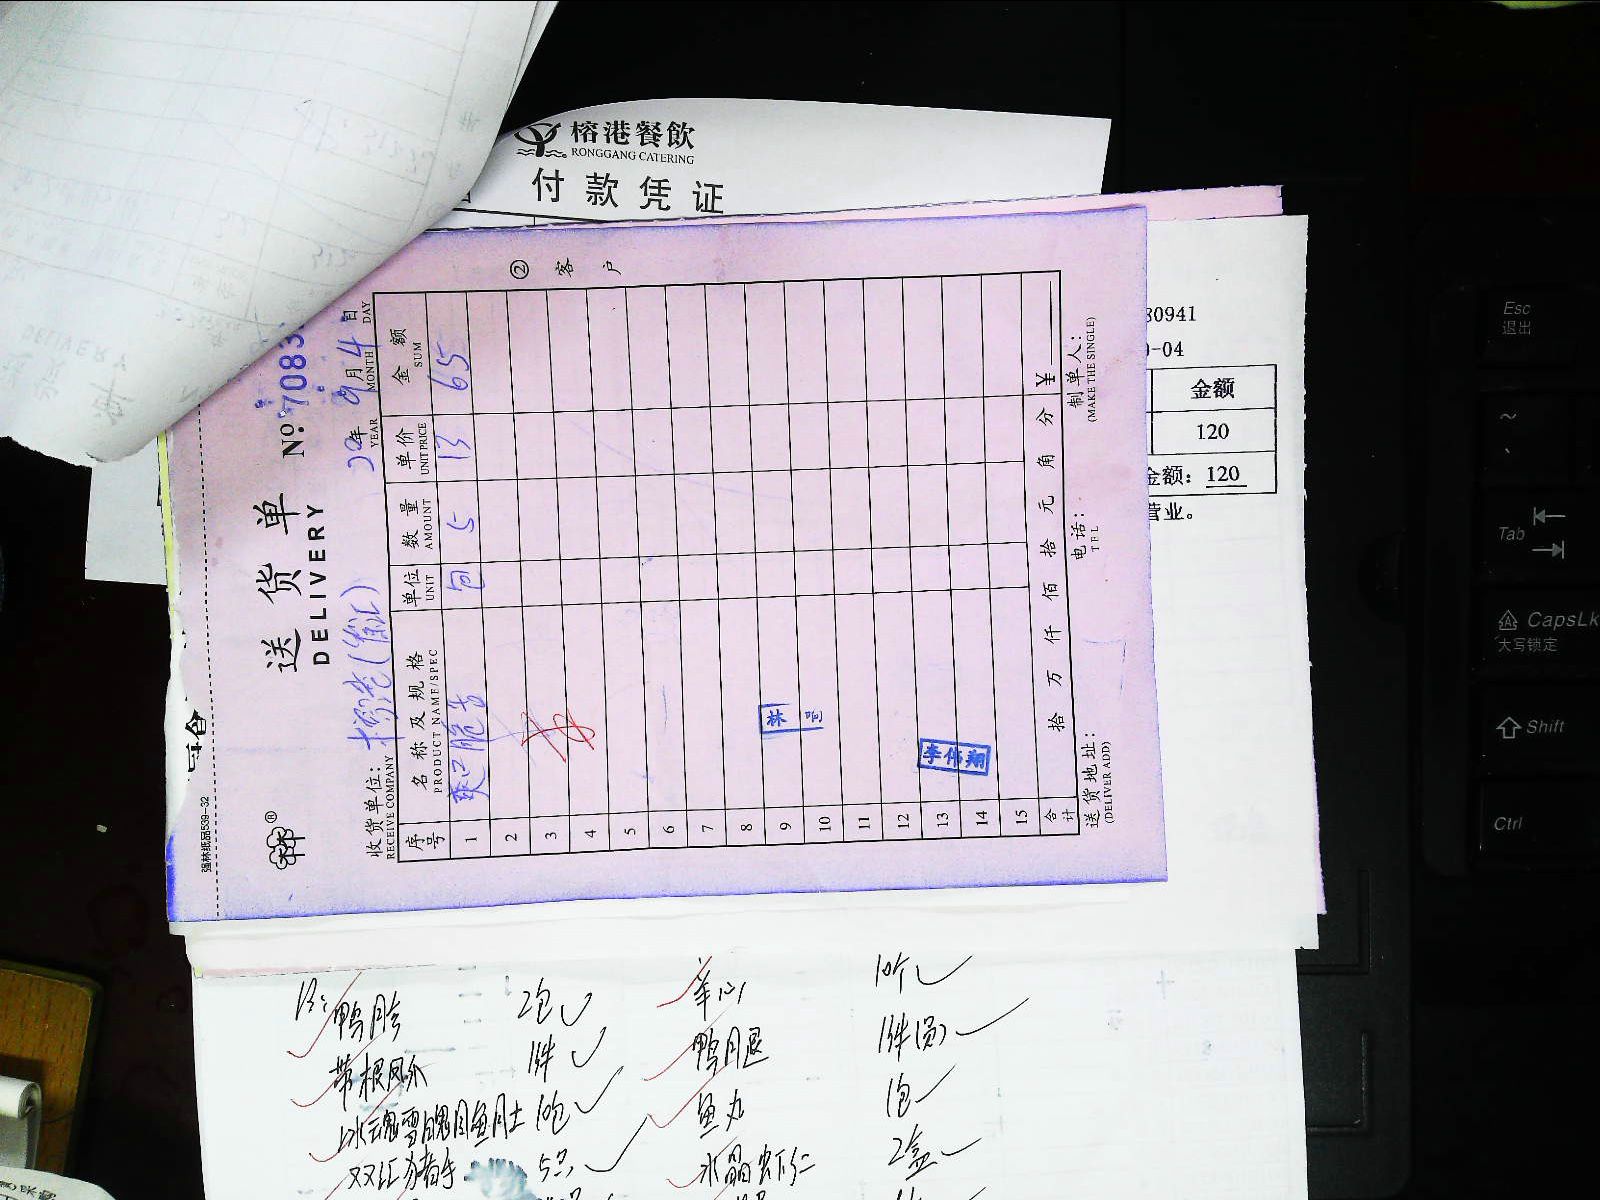 榕港餐飲
RONGGANG CATERING
付款凭证
80941
0-04
金额
120
金额：120
营业。
强林纸品539-32
送货单
DELIVERY
No. 7083
② 客户
收货单位：榕港(徐汇)
RECEIVE COMPANY
20年 9月 4日
YEAR MONTH DAY
序号 名称及规格 单位 数量 单价 金额
PRODUCT NAME/SPEC UNIT AMOUNT UNIT PRICE SUM
1 爽口脆 包 5 13 65
2
3
4
5
6
7
8
9
10
11
12
13
14
15
林
李伟翔
合计 拾 万 仟 佰 拾 元 角 分 ￥
送货地址： 电话： 制单人：
(DELIVER ADD) TEL (MAKE THE SINGLE)
鸭胗 2包 羊心 10个
带根凤爪 1件 鸭腿 1件
10包 鱼丸 1包
双汇猪手 5只 水晶虾仁 2盒
Esc
退出
~
Tab
CapsLk
大写锁定
Shift
Ctrl